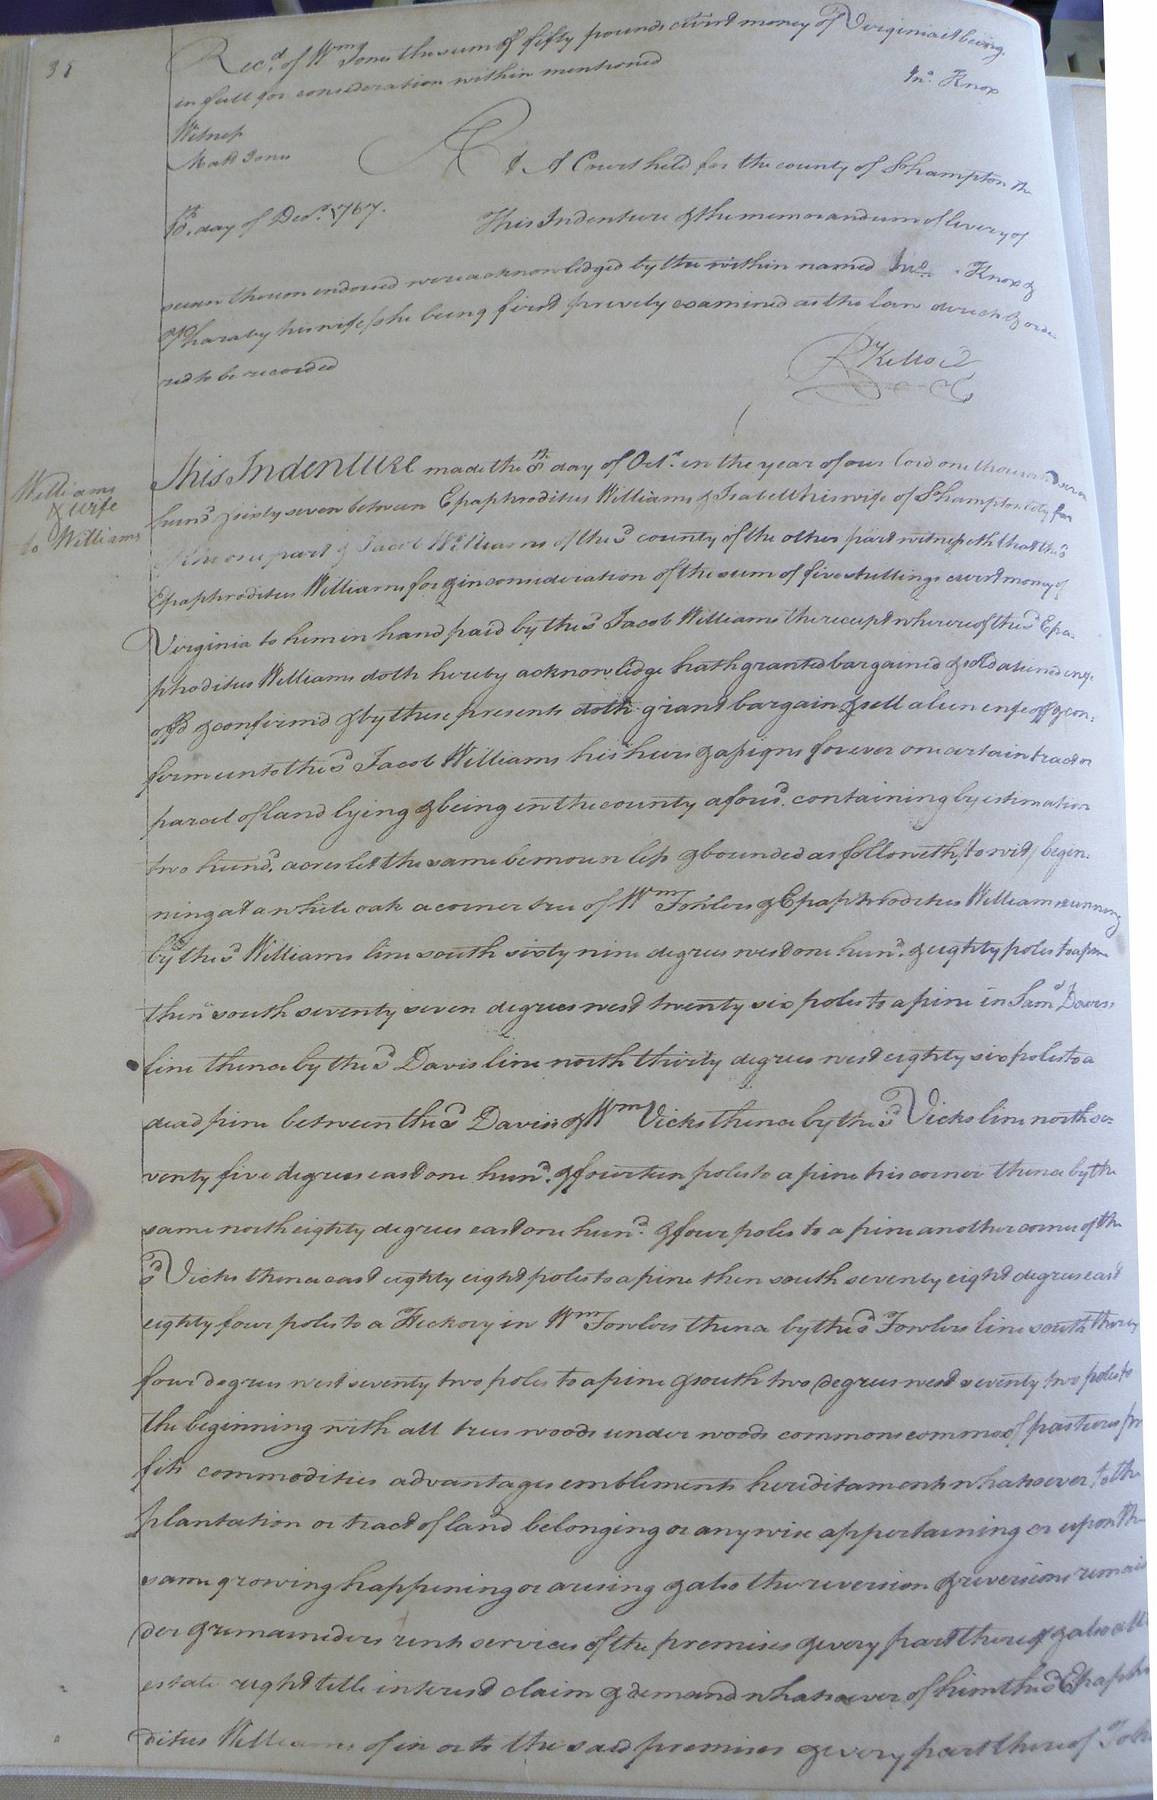 35
Rec.d of Wm Jones the sum of fifty pounds curr.t money of Virginia it being
in full for consideration within mentioned
Jn.o Knox
Witness
Matt Jones
At A Court held for the county of S.hampton the
day of Dec.r 1767.
This Indenture & the memorandum of livery of
seisen thereon endorsed were acknowledged by the within named Jn.o Knox &
Pharaby his wife she being first privily examined as the law directs & orde
red to be recorded
R Kello
Williams
& wife
to Williams
This Indenture made the 8th day of Oct.r in the year of our lord one thousand seven
hund.d sixty seven between Epaphroditus Williams & his wife of S.hampton for
the one part & Jacob Williams of the s.d county of the other part witnesseth that the s.d
Epaphroditus Williams for & in consideration of the sum of five shillings curr.t money of
Virginia to him in hand paid by the s.d Jacob Williams the receipt whereof the s.d Epa-
phroditus Williams doth hereby acknowledge hath granted bargained & sold aliened enfe
off'd & confirmed & by these presents doth grant bargain & sell alien enfeoff & con-
firm unto the s.d Jacob Williams his heirs & assigns forever one certain tract or
parcel of land lying & being in the county afous.d containing by estimation
two hund.d acres let the same be more or less & bounded as followeth, to wit, begin-
ning at a white oak a corner tree of Wm Fowlers & Epaphroditus Williams running
by the s.d Williams line south sixty nine degrees west one hun.d & eighty poles to a pine
then south seventy seven degrees west twenty six poles to a pine in Sam.l Davis's
line thence by the s.d Davis line north thirty degrees west eighty six poles to a
dead pine between the s.d Davis & Wm Vicks thence by the s.d Vicks line north se-
venty five degrees east one hun.d & fourteen poles to a pine his corner thence by the
same north eighty degrees east one hun.d & four poles to a pine another corner of the
s.d Vicks thence east eighty eight poles to a pine then south seventy eight degrees east
eighty four poles to a Hickory in Wm Fowlers thence by the s.d Fowlers line south thirty
four degrees west seventy two poles to a pine & south two degrees west seventy two poles to
the beginning with all trees woods under woods commons common of pastures pro
fits commodities advantages emblements heriditaments whatsoever to the
plantation or tract of land belonging or anywise appertaining or upon the
same growing happening or arising & also the reversion & reversions remain
der & remainders rents services of the premises & every part thereof & also all
estate right title interest claim & demand whatsoever of him the s.d Epaphro
ditus Williams of in or to the said premises & every part thereof To have